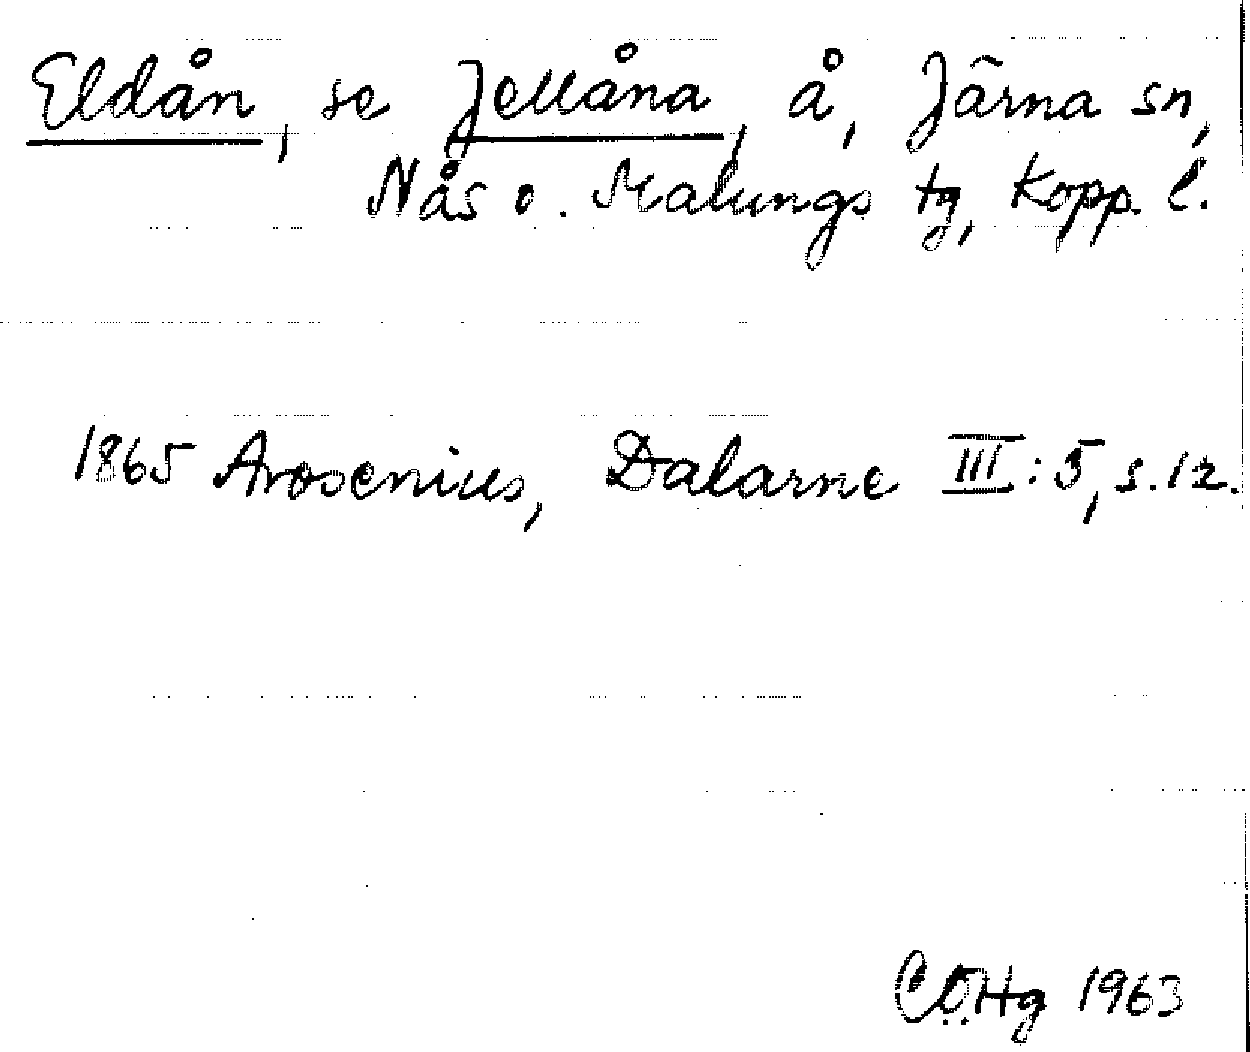 Eldån, se Jellåna, å, Järna sn,
Nås o. Malungs tg, Kopp. l.
1865 Arosenius, Dalarne III:5, s. 12.
CÖHg 1963